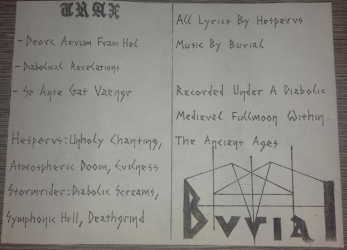 TRAX
- Deorc Aevum Fram Hel
- Diabolical Revelations
- Se Ante Gat Vaengr
Hespervs: Unholy Chanting,
Atmospheric Doom, Evilness
Stormrider: Diabolic Screams,
Symphonic Hell, Deathgrind
All Lyrics By Hespervs
Music By Burial
Recorded Under A Diabolic
Medieval Fullmoon Within
The Ancient Ages
Burial